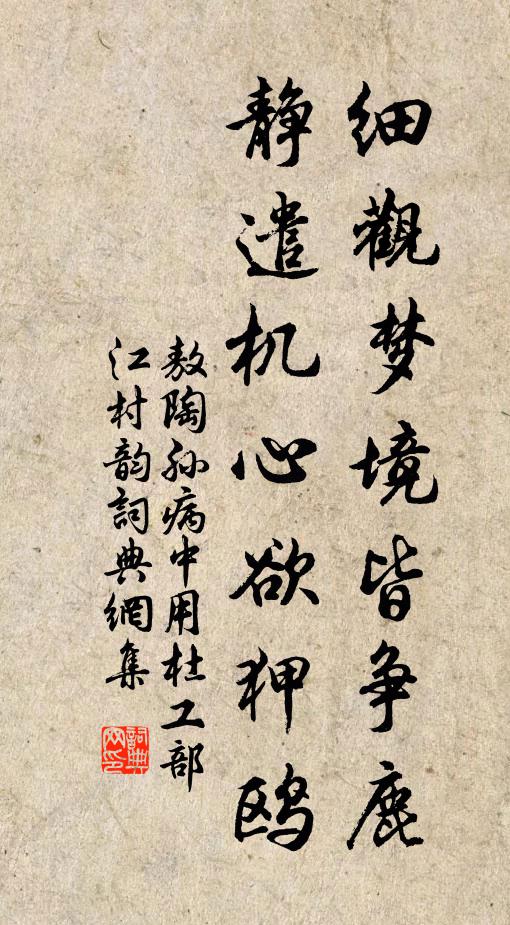 细觀梦境皆争鹿
静遣机心欲狎鸥
敖陶孙病中用杜工部
江村韵詞典網集
詞典
网印